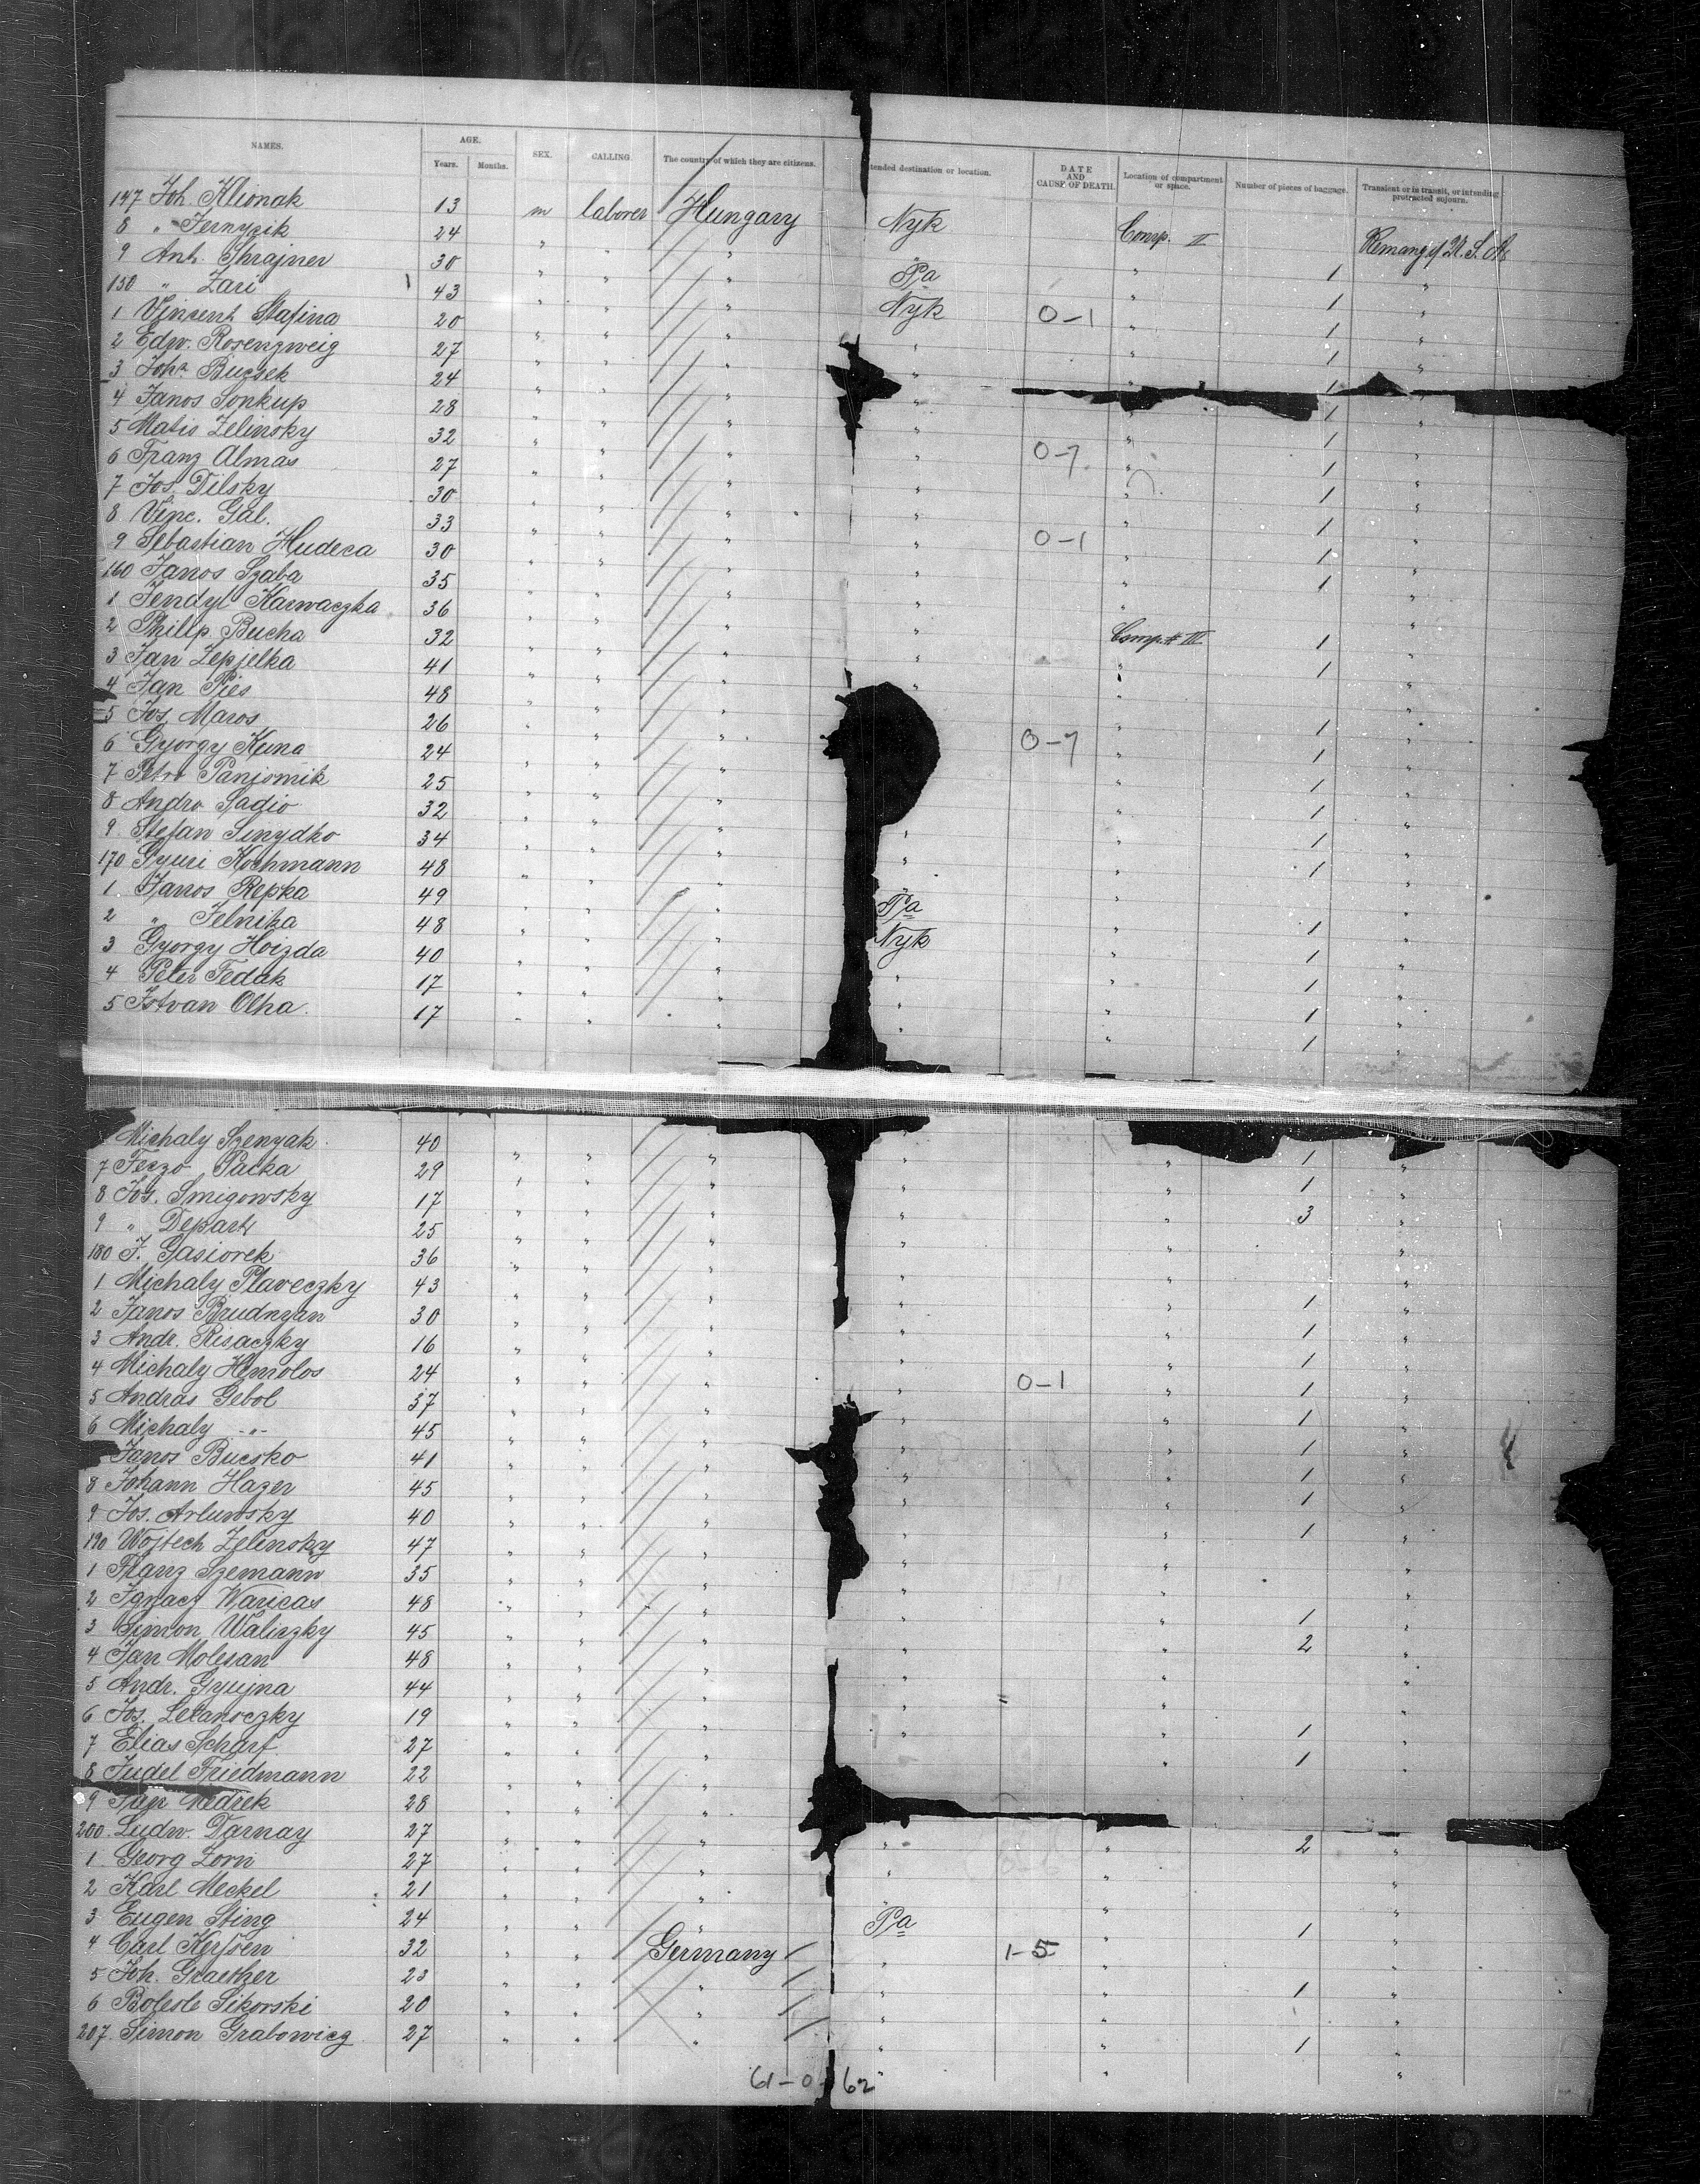 NAMES. AGE. SEX. CALLING. The country of which they are citizens. tended destination or location. DATE AND CAUSE OF DEATH. Location of compartment or space. Number of pieces of baggage. Transient or in transit, or intending protracted sojourn.
Years. Months.
147 Joh. Klionak 13 m laborer Hungary Nyk Comp. II U.S.A.
8 " Jernyzik 24 " " " "
9 Ant. Shrajner 30 " " " Pa " 1 "
150 " Zari 43 " " " Nyk " 1 "
1 Vincent Stafina 20 " " " " 0-1 " 1 "
2 Edw. Rosenzweig 27 " " " " " 1 "
3 Joh. Buzsek 24 " " " " " 1 "
4 Janos Sonkup 28 " " " " 1 "
5 Matis Zelinsky 32 " " " " " 1 "
6 Franz Almas 27 " " " " " 1 "
7 Jos. Dilsky 30 " " " " " 1 "
8 Vinc. Gal. 33 " " " " " 1 "
9 Sebastian Hudeca 30 " " " " 0-1 " 1 "
160 Janos Szaba 35 " " " " " 1 "
1 Jendyl Karwaczka 36 " " " " "
2 Philip Bucha 32 " " " " Comp. # III 1 "
3 Jan Zepjelka 41 " " " " " 1 "
4 Jan Pies 48 " " " "
5 Jos. Maros 26 " " " " 1 "
6 Gyorgy Kuna 24 " " " " 1 "
7 Petro Panjomik 25 " " " " 1 "
8 Andro Sadio 32 " " " " 1 "
9 Stefan Sinydko 34 " " " " " 1 "
170 Gyuri Kochmann 48 " " " " " 1 "
1 Janos Repka 49 " " " Pa "
2 " Jelnika 48 " " " Nyk " 1 "
3 Gyorgy Hoizda 40 " " " " " 1 "
4 Peter Fedak 17 " " " " " 1 "
5 Istvan Olha 17 " " " " " 1 "
Michaly Szenyak 40 " " " " " 1 "
7 Feczo Packa 29 " " " " " 1 "
8 Jos. Smigowsky 17 " " " " " 3 "
9 " Depart 25 " " " " " "
180 J. Gasiorek 36 " " " " "
1 Michaly Plaveczky 43 " " " " " 1 "
2 Janos Brudnyan 30 " " " " " 1 "
3 Andr. Risaczky 16 " " " " " 1 "
4 Michaly Homolos 24 " " " " 0-1 " 1 "
5 Andras Gebol 37 " " " " 1 "
6 Michaly -"- 45 " " " " " 1 "
Janos Bucsko 41 " " " " " 1 "
8 Johann Hazer 45 " " " " " 1 "
9 Jos. Arlunsky 40 " " " " 1 "
190 Wojtech Zelinsky 47 " " " " " "
1 Franz Szemann 35 " " " " " "
2 Ignacz Waricas 48 " " " " " 1 "
3 Simon Waliczky 45 " " " " " 2 "
4 Jan Molesan 48 " " " " " "
5 Andr. Gyujna 44 " " " " " "
6 Jos. Letanoczky 19 " " " " " 1 "
7 Elias Scharf 27 " " " " 1 "
8 Judel Friedmann 22 " " "
9 Jan Nedrek 28 " " "
200. Ludw. Darnay 27 " " " " " 2 "
1 Georg Zorn 27 " " " " " "
2 Karl Meckel 21 " " " " "
3 Eugen Sting 24 " " " Pa " 1 "
4 Carl Kerssen 32 " " Germany " 1-5 " "
5 Joh. Graetzer 23 " " " " " 1 "
6 Bolesle Sikorski 20 " " " " " "
207. Simon Grabowicz 27 " " " " " 1 "
61-0-62